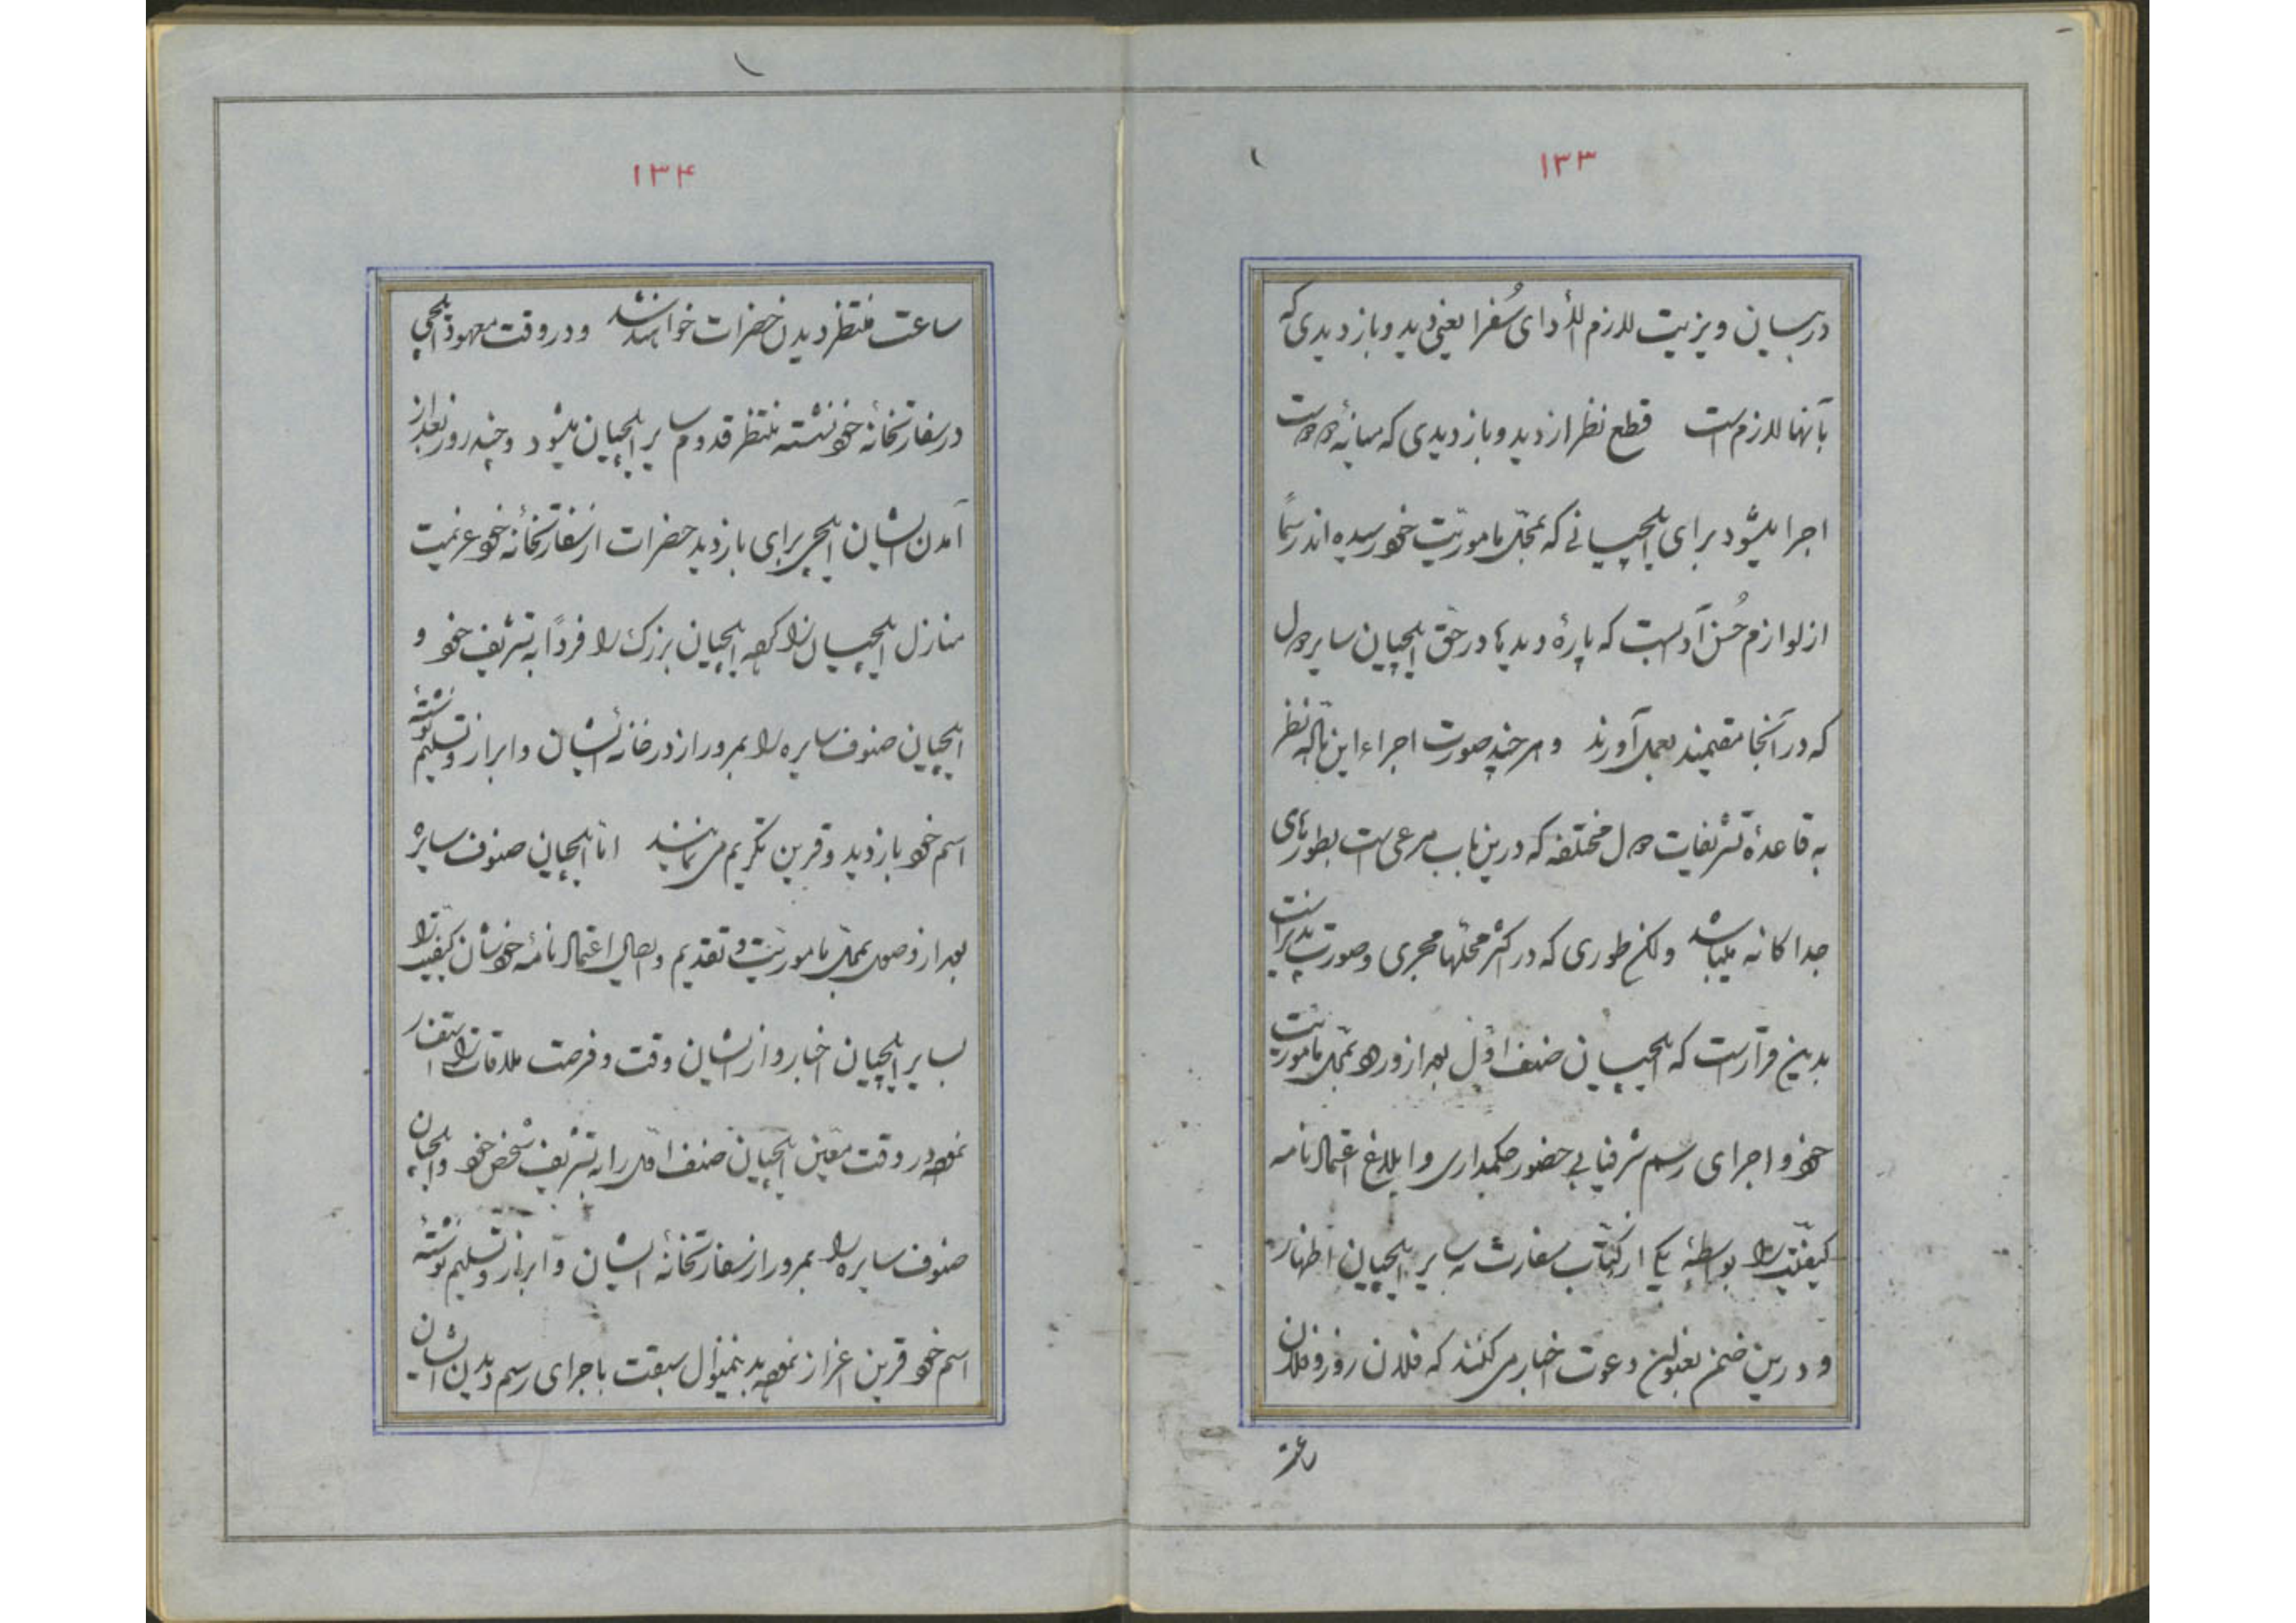 ۱۳۳
در بیان ویزیت لازم الأدای سُفرا یعنی دید و بازدیدی که
بآنها لازم است قطع نظر از دید و بازدیدی که میانهٔ دول است
اجرا میشود برای ایلچیانی که بمحل مأموریت خود رسیده اند رسماً
از لوازم حُسن آداب است که پارهٔ دیدها در حق ایلچیان سایر دول
که در آنجا مقیمند بعمل آورند و هر چند صورت اجراء این نظر
به قاعدهٔ تشریفات دول مختلفه که درین باب مرعی است بطورهای
جداکانه میباشد ولکن طوری که در اکثر محلها مجری و صورت پذیر است
بدین قرار است که ایلچیان صنف اوّل بعد از ورود بمحل مأموریت
خود و اجرای رسم شرفیابی حضور حکمداری و ابلاغ اعتمادنامه
کیفیّت را بواسطهٔ یکی از کتّاب سفارت به سایر ایلچیان اظهار
و درین ضمن بعنوان دعوت اخبار می کنند که فلان روز و فلان
ساعت
۱۳۴
ساعت منتظر دیدن حضرات خواهند شد و در وقت معهود ایلچی
در سفارتخانه خود نشسته منتظر قدوم سایر ایلچیان میشود و چند روز بعد از
آمدن ایشان ایلچی برای بازدید حضرات از سفارتخانهٔ خود عزیمت
منازل ایلچیان را کرده ایلچیان بزرک را فرداً به تشریف خود و
ایلچیان صنوف سایره را بمرور از در خانهٔ ایشان و ابراز و تسلیم نوشتهٔ
اسم خود بازدید و قرین تکریم می نمایند امّا ایلچیان صنوف سایره
بعد از وصول بمحل مأموریّت و تقدیم و ایصال اعتمادنامهٔ خودشان کیفیّت را
بسایر ایلچیان اخبار و از ایشان وقت و فرصت ملاقات را استفسار
نموده در وقت معیّن ایلچیان صنف اوّل را به تشریف شخص خود و ایلچیان
صنوف سایره را بمرور از سفارتخانهٔ ایشان و ابراز و تسلیم نوشتهٔ
اسم خود قرین اعزاز نموده بدینمنوال سبقت باجرای رسم دیدن ایشان